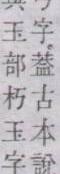 字。蓋古本說
玉部朽玉字